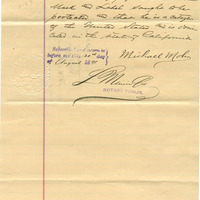 Mark and Label sought to be
protected and that he is a citizen
of the United States and is dom
iciled in the state of California
Michael Mohr
Subscribed and sworn to
before me this 22nd day
of August
NOTARY PUBLIC